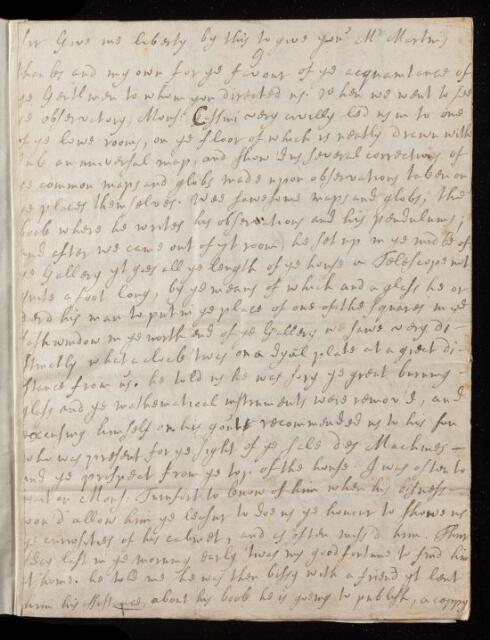 Sir Give me liberty by this to give you Mr Martins
thanks and my own for ye favour of ye acquaintance of
ye Gentlmen to whom you directed us. When we went to see
ye observatory, Monsr Cassini very civilly led us in to one
of ye lowe rooms, on ye floor of which is neatly drawn with
ink an universal map, and show'd us several corrections of
ye common maps and globs made upon observations taken on
ye places themselves. We saw some maps and globs, the
book where he writes his observations and his pendulums;
and after we came out of yt room he set up in ye midle of
ye Gallery yt goes all ye length of ye house a Telescope not
quite a foot long, by ye means of which and a glass he or
derd his man to put in ye place of one of the squares in ye
sash window in ye north end of ye Gallery we sawe very di-
stinctly what a clock 'twas on a Dyal plate at a great di-
stance from us. he told us he was sory ye great burning-
glass and ye mathematical instruments were remov'd, and
excusing himself on his goute recommended us to his son
who was present for ye sight of ye sale des Machines -
and ye prospect from ye top of the house. I was often to
wait on Mons. Turnfort to know of him when his bisness
would allow him ye leasur to doe us ye honour to showe us
ye curiosities of his cabinet, and as often miss'd him. Thurs
day last in ye morning early 'twas my good fortune to find him
at home. he told me he was then bissy with a friend yt lent
him his about his book he is going to publish, a coppy